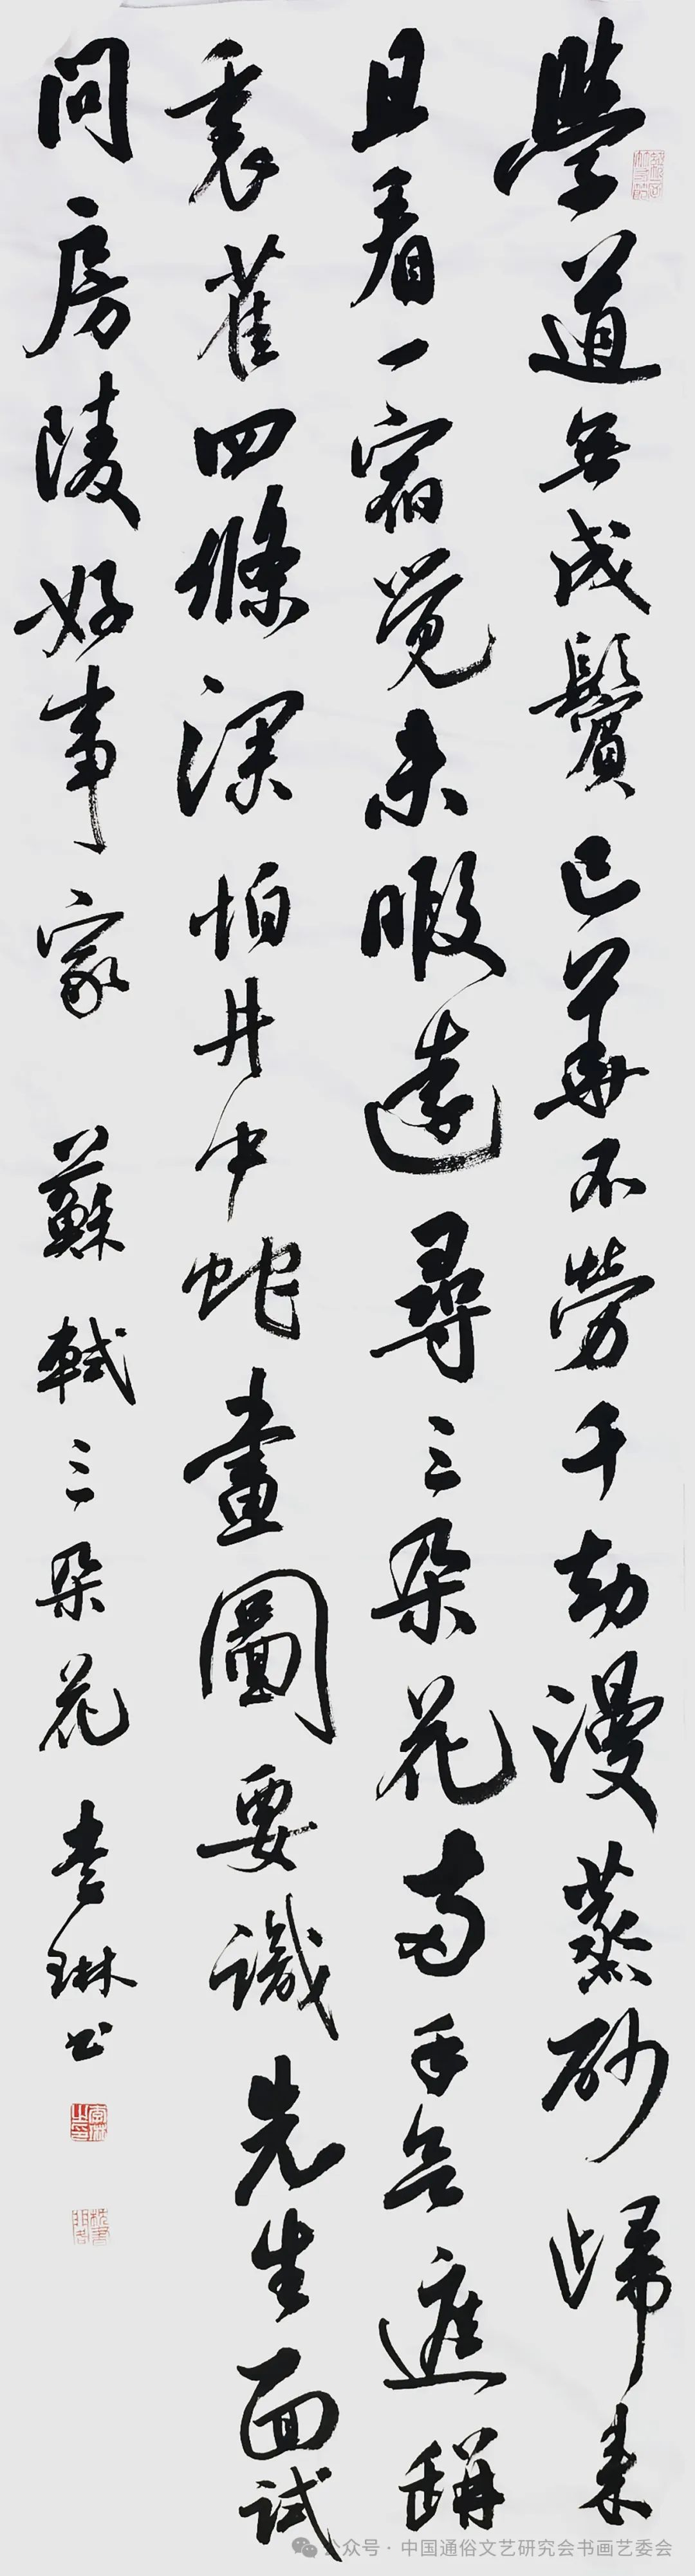 學道無成鬢已華不勞千劫漫蒸砂歸来
且看一宿覺未暇遠尋三朵花両手欲遮缾
裏雀四條深怕井中蛇畫圖要識先生面試
問房陵好事家 蘇軾三朵花 李琳书
李琳之印
公众号 · 中国通俗文艺研究会书画艺委会